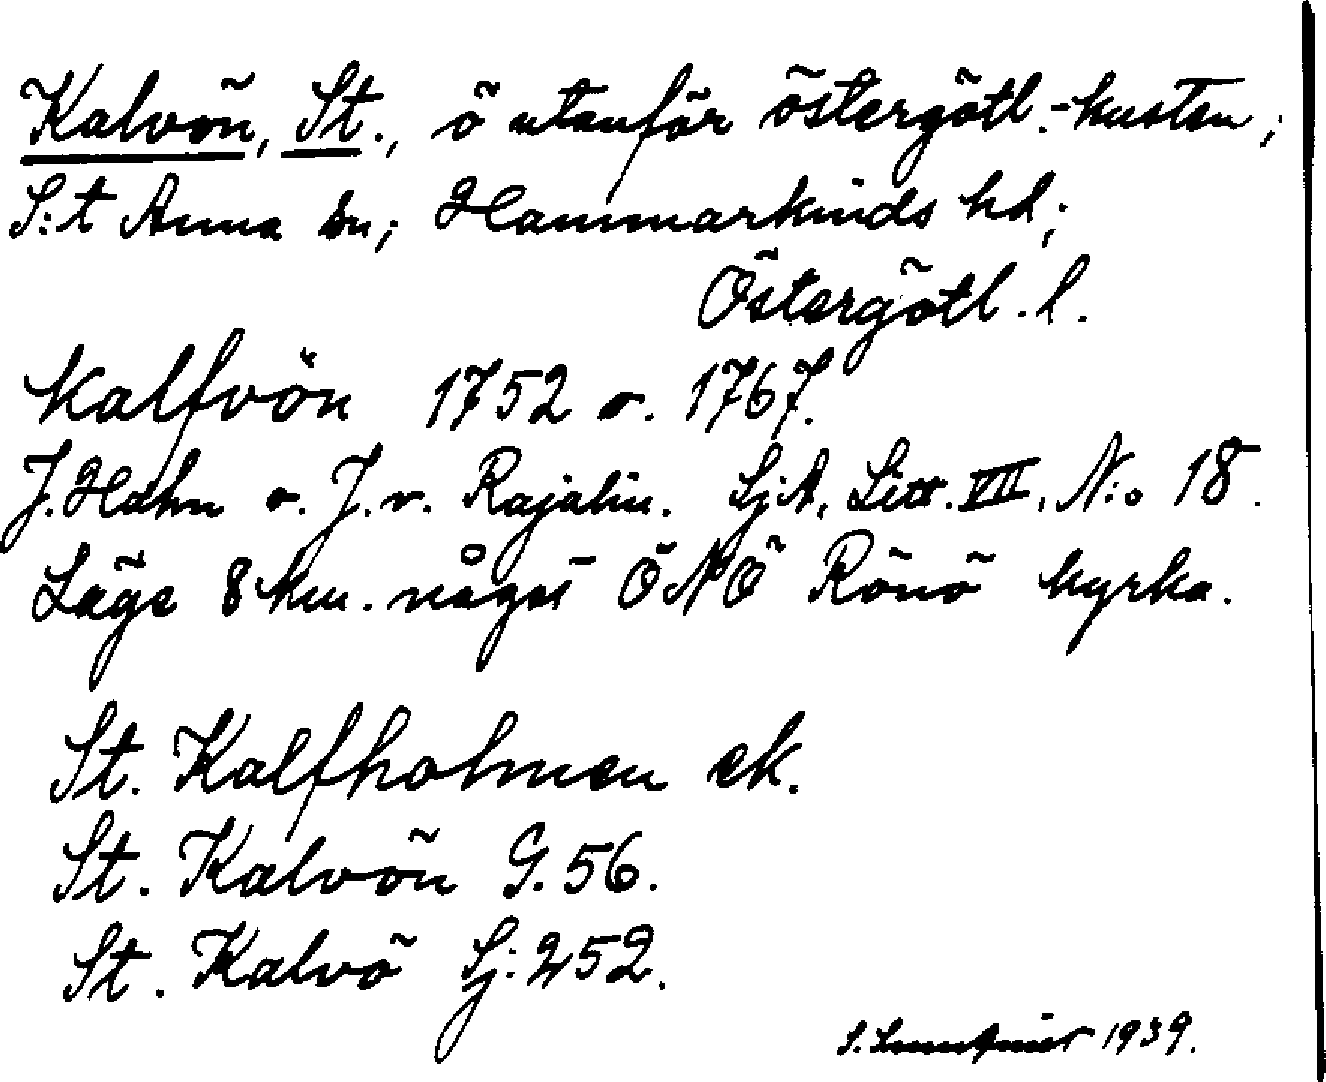 Kalvön, St., ö utanför östergötl.-kusten;
S:t Anna sn; Hammarkinds hd;
Östergötl. l.
Kalfvön 1752 o. 1767.
J. Hahn o. J. v. Rajalin. Sj.A. Litt. VII. N:o 18.
Läge 8 km. något ÖNÖ Rönö kyrka.
St. Kalfholmen ek.
St. Kalvön G. 56.
St. Kalvö Sj: 252.
S. 1939.